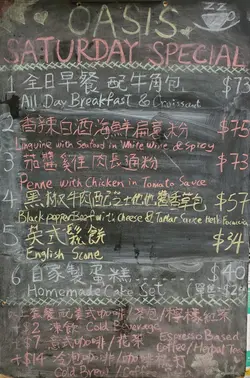 OASIS
SATURDAY SPECIAL
1 全日早餐 配牛角包 $73
All Day Breakfast & Croissant
2 香辣白酒海鮮扁意粉 $75
Linguine with Seafood in White Wine & Spicy
3 茄醬雞肉長通粉 $73
Penne with Chicken in Tomato Sauce
4 黑椒牛肉配芝士 包 $57
Black pepper Beef with Cheese & Tartar Sauce Fresh Focaccia
5 英式鬆餅 $34
English Scone
6 自家製蛋糕 $40
Homemade Cake Set
以上套餐 咖啡/茶/檸檬紅茶
+$2 凍飲 Cold Beverage
+$7 意式咖啡/花茶 Espresso Based Coffee/Herbal Tea
+$14 冷泡咖啡/
Cold Brew / Coffee